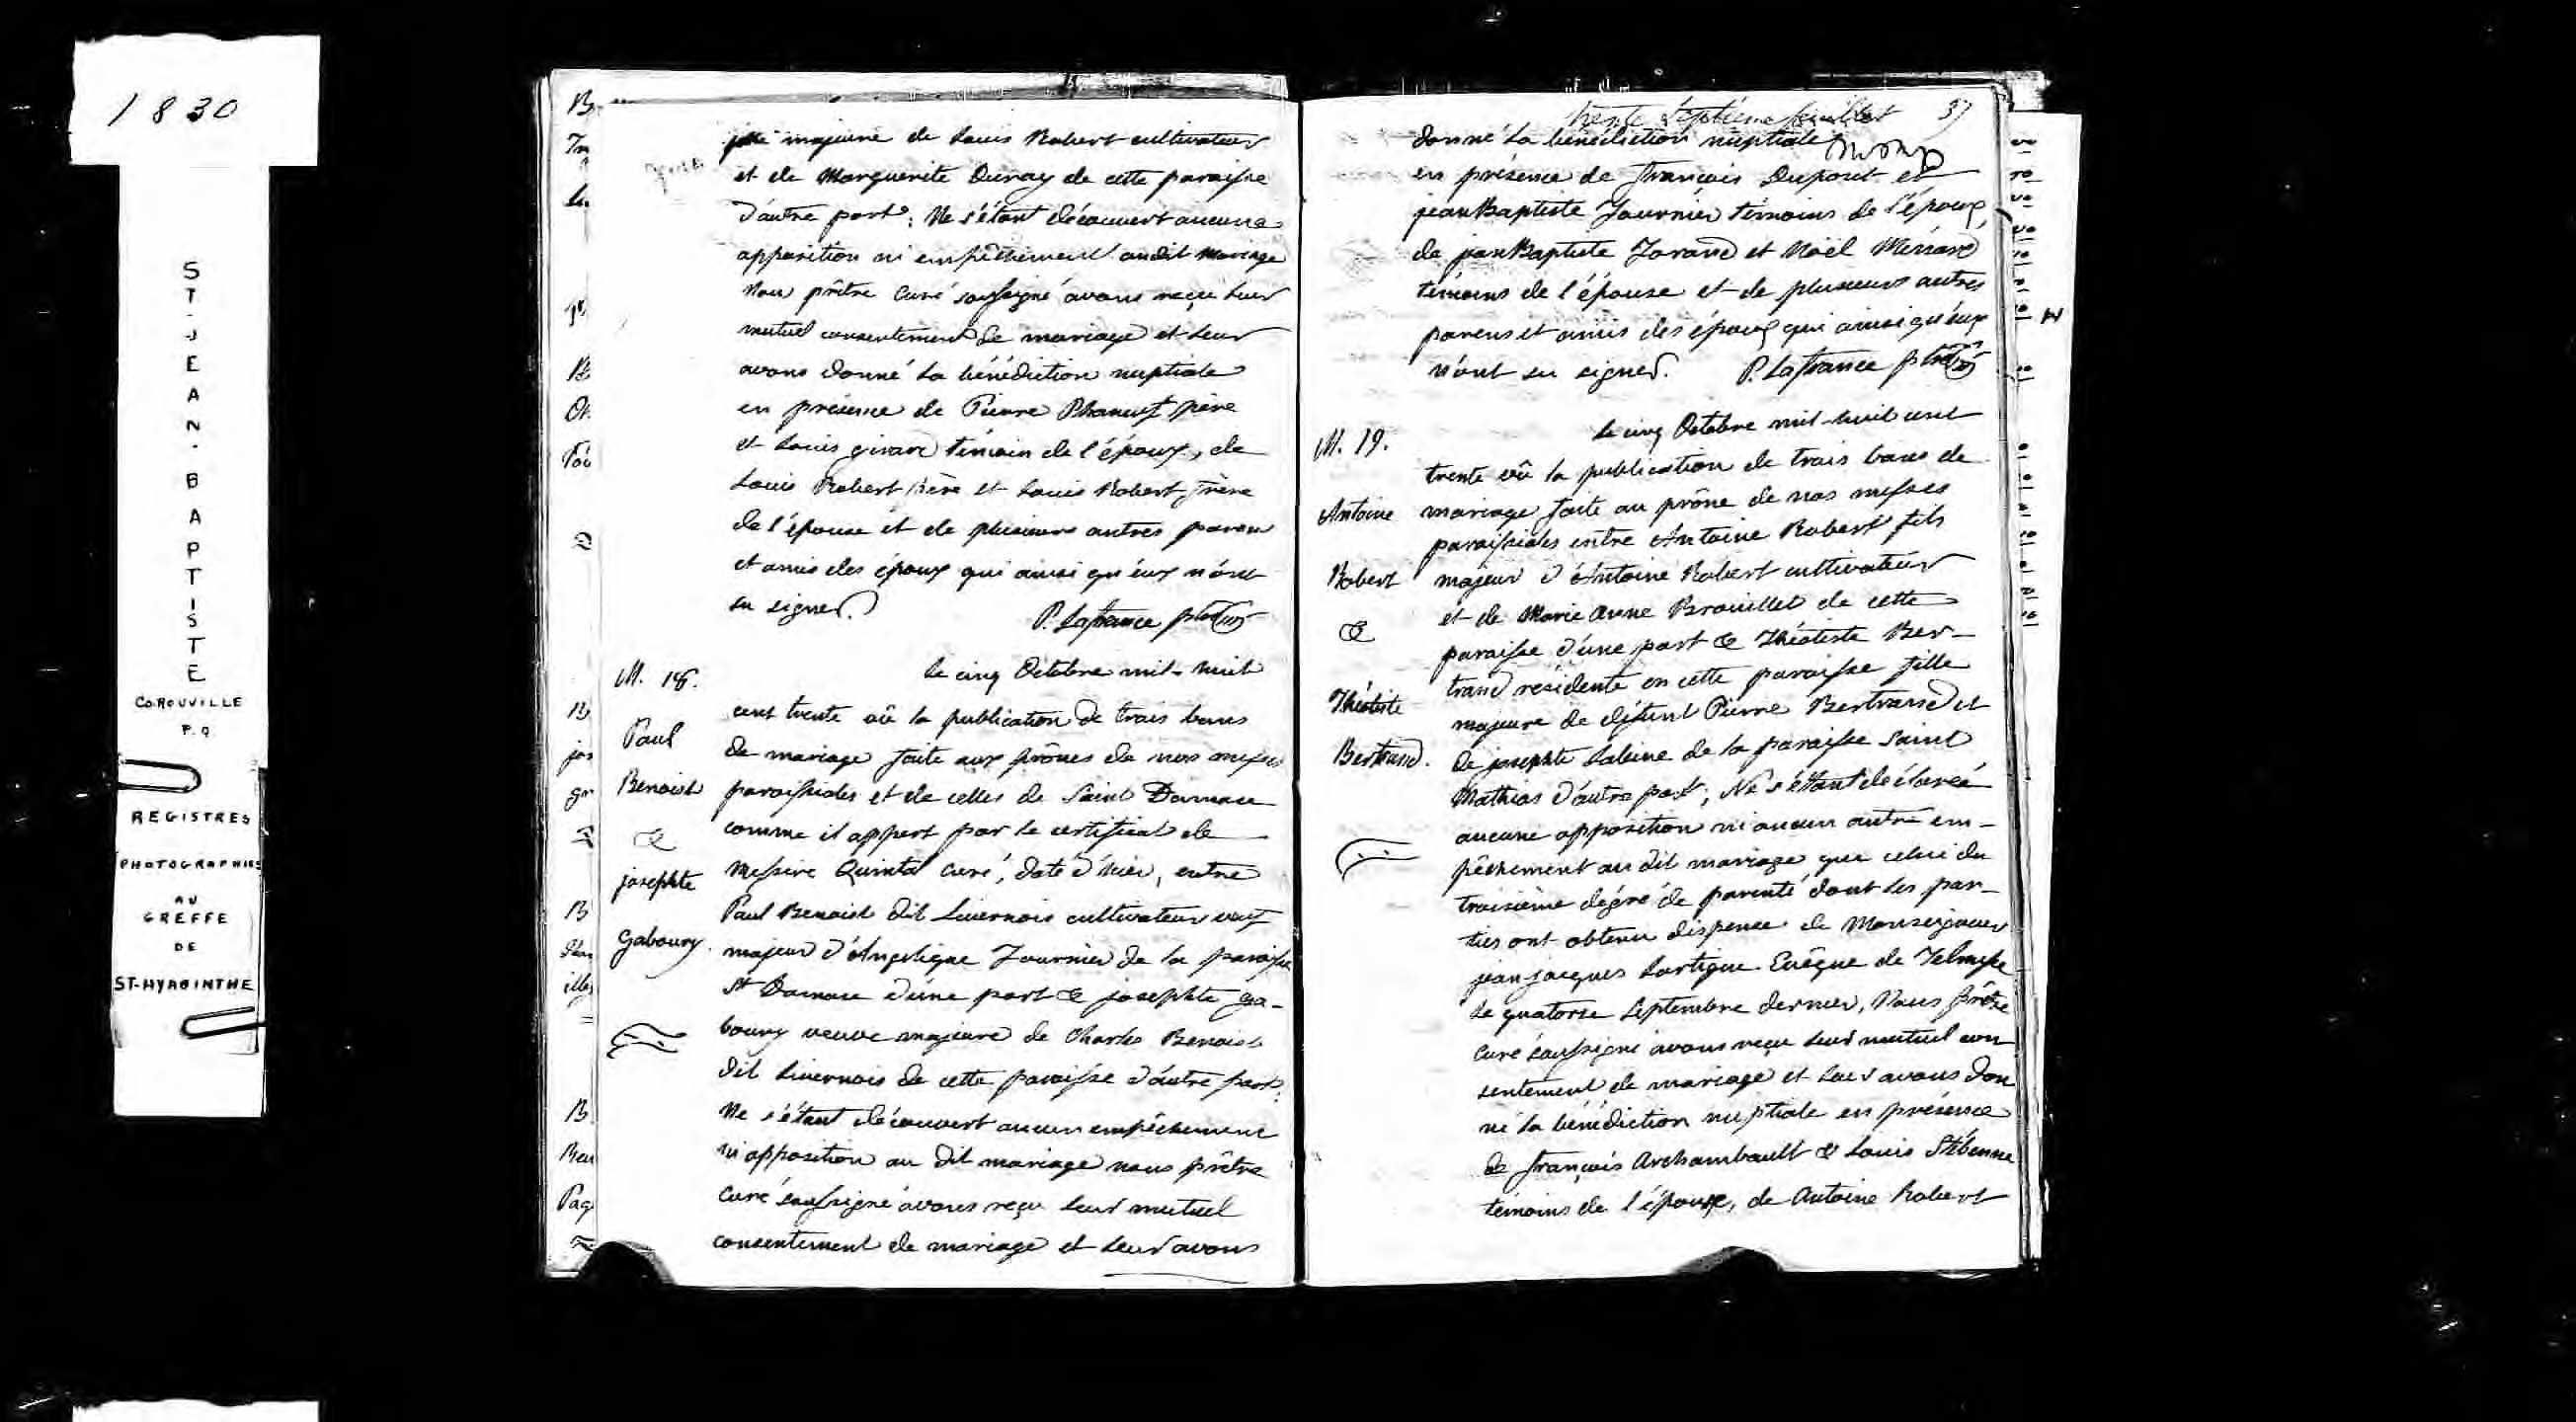 1830
ST-JEAN-BAPTISTE
CO. ROUVILLE
P.Q
REGISTRES
PHOTOGRAPHIÉS
AU
GREFFE
DE
ST-HYACINTHE
majeure de Louis Robert cultivateur
et de Marguerite Duray de cette paroisse
d'autre part; Ne s'étant découvert aucune
opposition ni empêchement audit mariage
Nous prêtre Curé soussigné avons reçu leur
mutuel consentement de mariage et leur
avons donné la bénédiction nuptiale
en présence de Pierre Phaneuf père
et Louis girard témoin de l'époux, de
Louis Robert père et Louis Robert frère
de l'épouse et de plusieurs autres parens
et amis des époux qui ainsi qu'eux n'ont
su signer.
P. Lafrance ptre
M. 18.
Paul
Benoist
&
josephte
Gaboury.
Le cinq Octobre mil-huit
cent trente vû la publication de trois bans
de mariage faite aux prônes de nos messes
paroissiales et de celles de Saint Damase
comme il appert par le certificat de
Messire Quintal curé, daté d'hier, entre
Paul Benoist dit Livernois cultivateur veuf
majeur d'Angelique Fournier de la paroisse
St Damase d'une part & josephte Ga-
boury veuve majeure de Charles Benoist
dit Livernois de cette paroisse d'autre part;
Ne s'étant découvert aucun empêchement
ni opposition au dit mariage nous prêtre
Curé soussigné avons reçu leur mutuel
consentement de mariage et leur avons
trente septième feuillet 37
donné la bénédiction nuptiale
en présence de François Dupont et
jean Baptiste Fournier témoins de l'époux,
de jean Baptiste et Noël
témoins de l'épouse et de plusieurs autres
parens et amis des époux qui ainsi qu'eux
n'ont su signer. P. Lafrance ptre
M. 19.
Antoine
Robert
&
Théotiste
Bertrand.
Le cinq Octobre mil-huit cent
trente vû la publication de trois bans de
mariage faite au prône de nos messes
paroissiales entre Antoine Robert fils
majeur d'Antoine Robert cultivateur
et de Marie Anne Brouillet de cette
paroisse d'une part & Théotiste Ber-
trand résidente en cette paroisse fille
majeure de défunt Pierre Bertrand et
de josephte de la paroisse Saint
Mathias d'autre part; Ne s'étant déclaré
aucune opposition ni aucun autre em-
pêchement au dit mariage que celui du
troisième dégré de parenté dont les par-
ties ont obtenu dispense de Monseigneur
jean jacques Lartigue Evêque de Telmesse
le quatorze Septembre dernier, Nous prêtre
Curé soussigné avons reçu leur mutuel con
sentement de mariage et leur avons don
né la bénédiction nuptiale en présence
de françois Archambault & Louis
témoins de l'épouse, de Antoine Robert